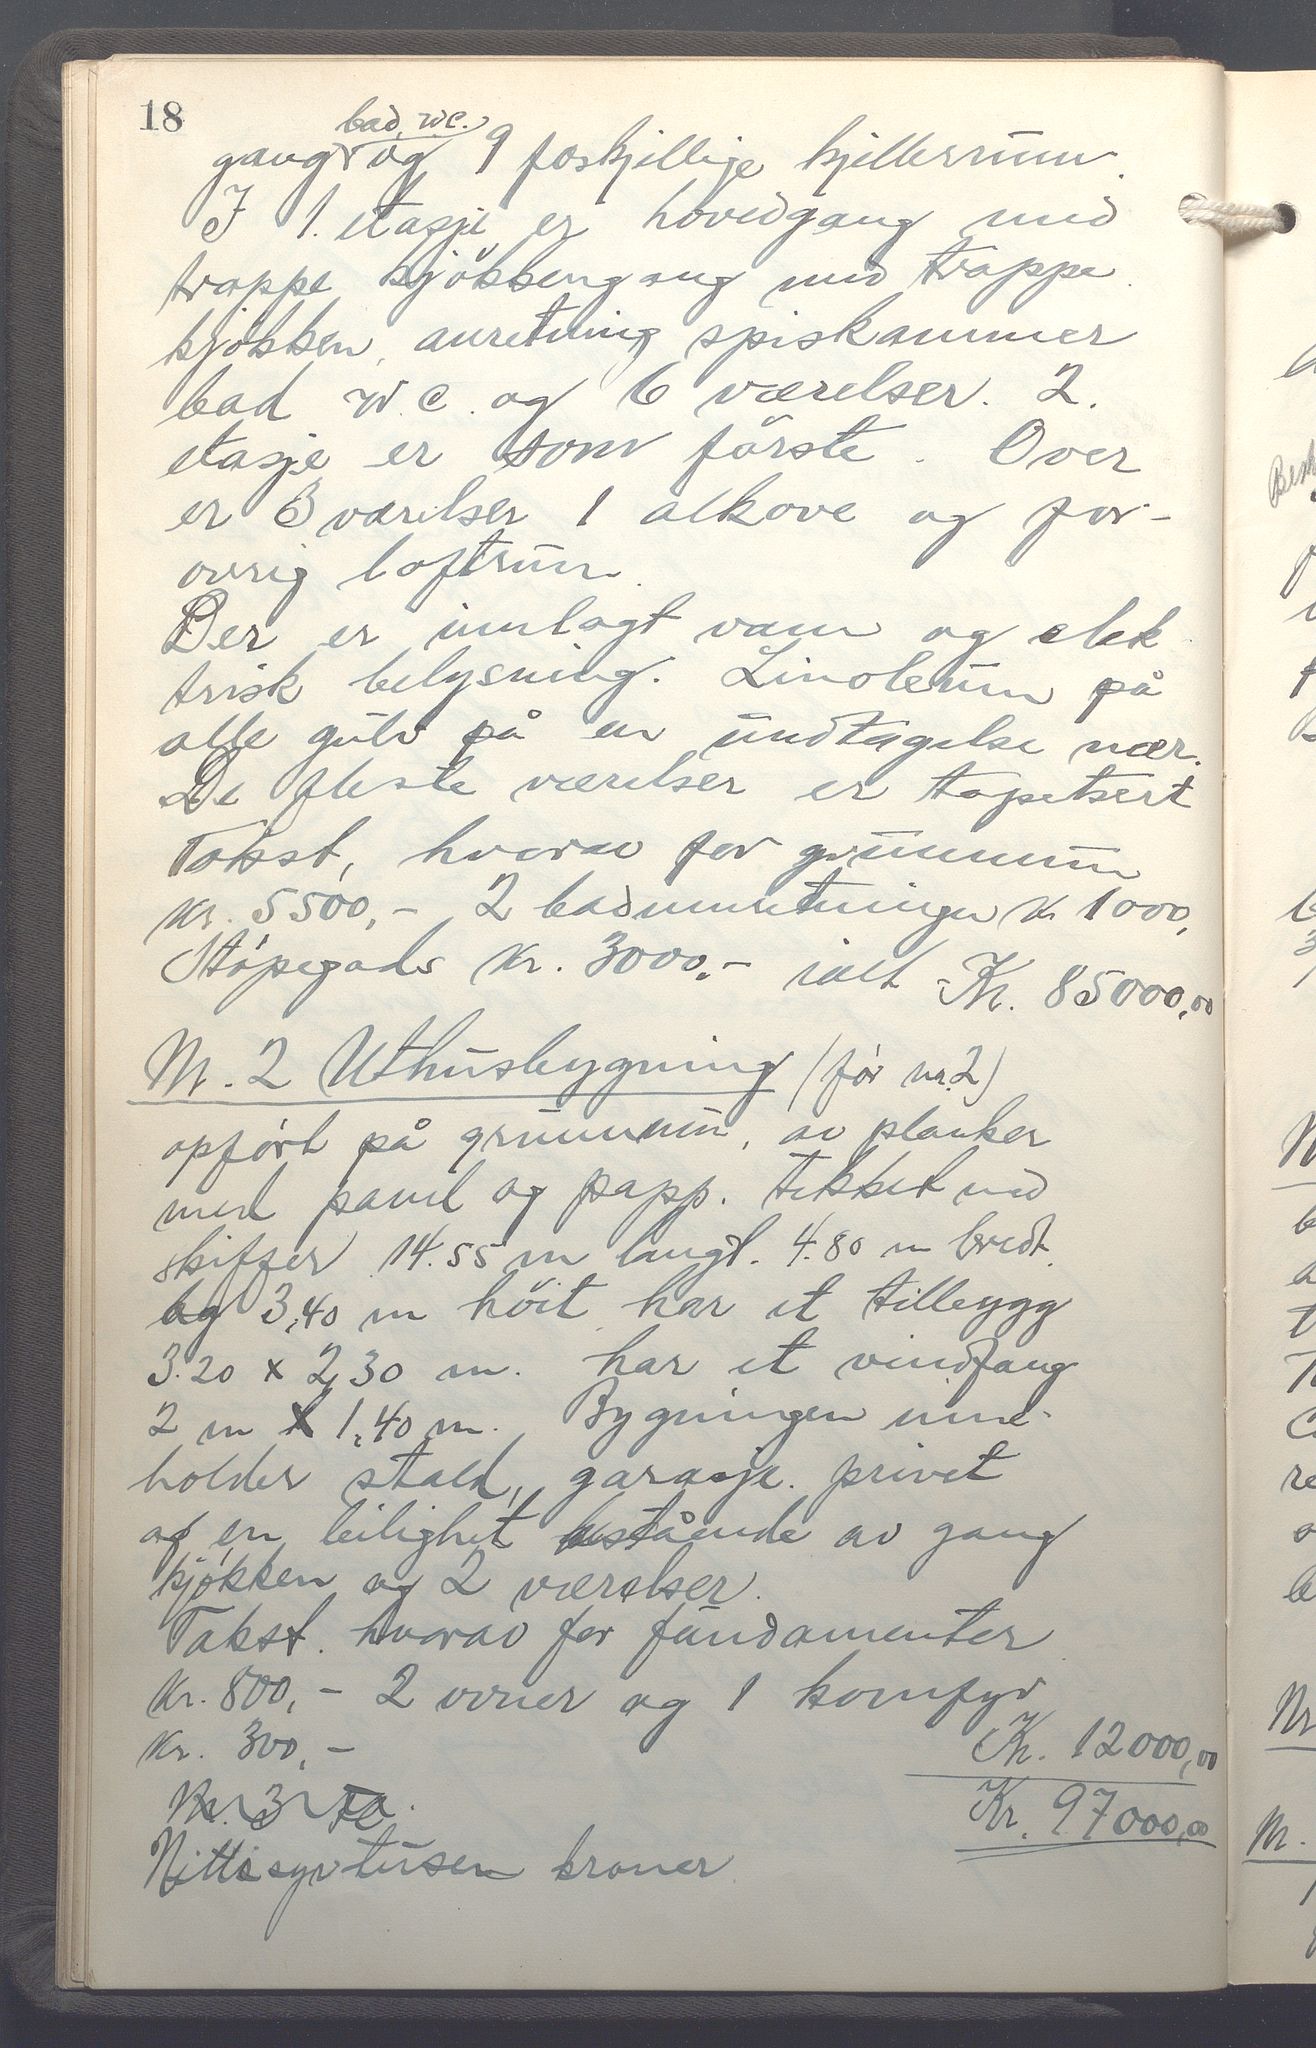 18
bad, wc.
gang og 9 foskjellige kjellerrum.
I 1. etasje er hovedgang med
trappe kjökkengang med trappe
kjökken, anretning spiskammer
bad w.c. og 6 værelser. 2.
etasje er som förste. Over
er 3 værelser 1 alkove og for-
ovrig loftrum.
Der er innlagt vann og elek
trisk belysning. Linoleum på
alle gulv på en undtagelse nær.
De fleste værelser er tapetsert
Takst, hvorav for grunnmur
kr. 5500,- 2 badeinnretninger kr 1000,
Støpegods kr. 3000,- ialt Kr. 85000,00
Nr. 2 Uthusbygning (før nr. 2)
opført på grunnmur, av planker
med panel og papp. tekket med
skiffer 14.55 m langt. 4.80 m bredt.
og 3,40 m höit har et tilbygg
3.20 x 2,30 m. har et vindfang
2 m x 1,40 m. Bygningen inne-
holder stald, garasje. privet
og en leilighet bestående av gang
kjøkken og 2 værelser.
Takst. hvorav for fundamenter
kr. 800,- 2 ovner og 1 komfyr
kr. 300,- Kr. 12000,00
Nr. 3 Kr. 97000,00
Nittisyvtusen kroner
Nr
Nr.